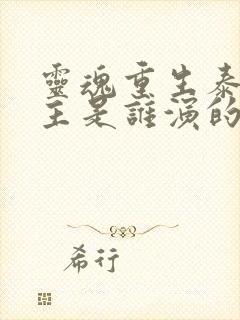 靈魂重生泰
主是誰演的
希行